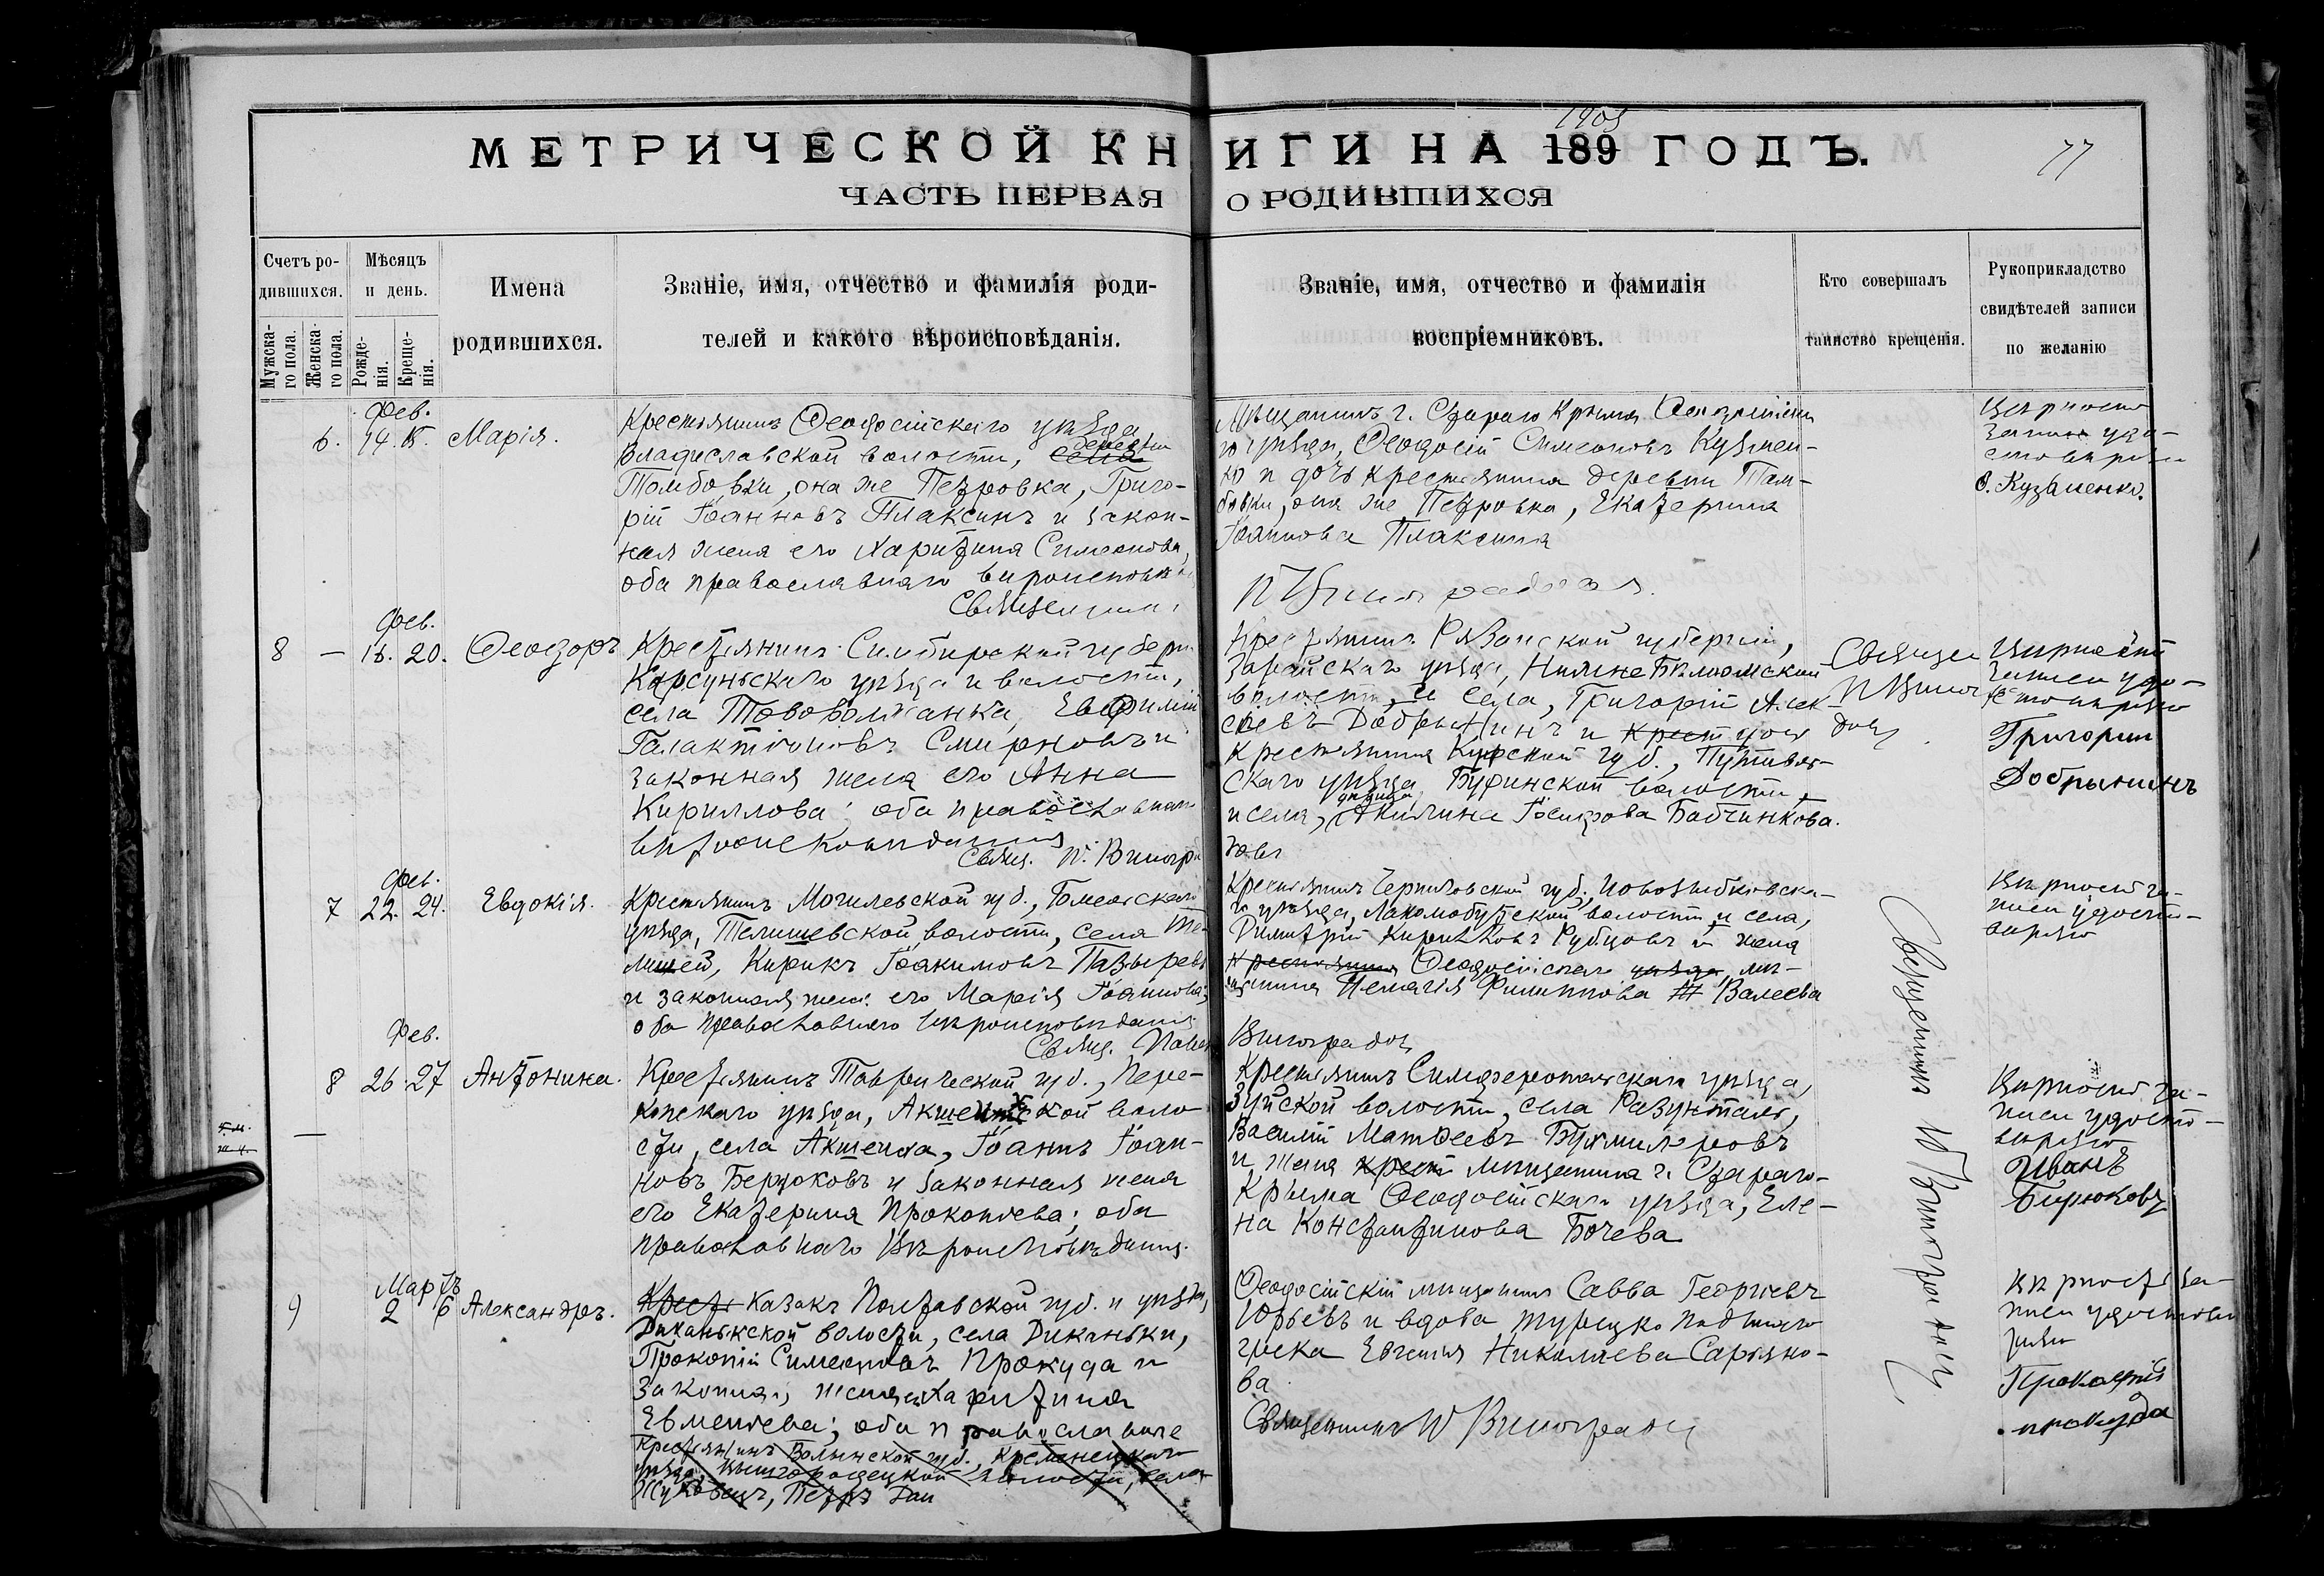 МЕТРИЧЕСКОЙ КНИГИ НА 189 ГОДЪ.
1905
77
ЧАСТЬ ПЕРВАЯ О РОДИВШИХСЯ
Счетъ ро-
дившихся.
Мужска-
го пола.
Женска-
го пола.
Мѣсяцъ
и день.
Рожде-
нія.
Креще-
нія.
Имена
родившихся.
Званіе, имя, отчество и фамилія роди-
телей и какого вѣроисповѣданія.
Званіе, имя, отчество и фамилія
воспріемниковъ.
Кто совершалъ
таинство крещенія.
Рукоприкладство
свидѣтелей записи
по желанію
Фев.
6. 14. 15. Марія.
Крестьянинъ Ѳеодосійскаго уѣзда
Владиславской волости, села деревни
Тамбовки, она же Петровка, Григо-
рій Іоанновъ Плаксинъ и закон-
ная жена его Харитина Симеонова,
оба православнаго вѣроисповѣд
Священникъ
Мѣщанинъ г. Стараго Крыма Ѳеодосійска
го уѣзда, Ѳеодосій Симеоновъ Кузмен-
ко и дочь крестьянина деревни Там-
бовки, она же Петровка, Екатерина
Іоаннова Плаксина
П Виноградовъ
Вѣрность
записи удо-
стовѣряю
Ѳ. Кузменко.
Фев.
8 — 16. 20. Ѳеодоръ
Крестьянинъ Симбирской губерн
Корсуньскаго уѣзда и волости,
села Тововолжанка, Евфимій
Галактіоновъ Смирновъ и
законная жена его Анна
Кириллова; оба православнаго
вѣроисповѣданія
Свящ. П. Виногра
Крестьянинъ Рязанской губерніи,
Зарайскаго уѣзда, Нижне Бѣлоомской
волости, и села, Григорій Алек-
сѣевъ Добрынинъ и крест дочь
крестьянина Курской губ., Путивль-
скаго уѣзда, Буринской волости,
и села, дѣвица Акилина Бабчинкова.
довъ
Священ
П Виногра
довъ
Вѣрность
записи удо-
стовѣряю
Григорий
Добрынинъ
Фев.
7 22. 24. Евдокія.
Крестьянинъ Могилевской губ., Гомельскаго
уѣзда, Телишевской волости, села Те-
лишей, Кирикъ Іоакимовъ Пазыревъ
и законная жена его Марія Іоаннова;
оба православнаго вѣроисповѣданія
Свящ. Павелъ
Крестьянинъ Черниговской губ., Новозыбковска-
го уѣзда, Лакомобудской волости и села,
Димитрій Кирилловъ Рубцовъ и жена
крестьянина Ѳеодосійскаго уѣзда мѣ-
щанина Пелагія Филиппова Валеева
Виноградовъ
Вѣрность за-
писи удосто-
вѣряю
Фев.
8 26 27 Антонина.
—
Крестьянинъ Таврической губ., Пере-
копскаго уѣзда, Акшеихской воло
сти, села Акшеиха, Іоаннъ Іоан-
новъ Берюковъ и законная жена
его Екатерина Прокопіева; оба
православнаго вѣроисповѣданія.
Крестьянинъ Симферопольскаго уѣзда,
Зуйской волости, села Розенталь,
Василій Матѳеевъ Бурмилеровъ
и жена крест мѣщанина г. Стараго-
Крыма Ѳеодосійскаго уѣзда, Еле-
на Константинова Бочева
Священникъ П Виноградовъ
Вѣрность за-
писи удосто-
вѣряю
Иванъ
Бирюковъ
Мартъ
9 2 6 Александръ.
Крестъ Казакъ Полтавской губ. и уѣзда,
Диканьской волости, села Диканьки,
Прокопій Симеоновъ Прокуда и
законная жена Харитина
Евментева; оба православные
Крестьянинъ Волынской губ., Кременецкаго
уѣзда, Вышгородецкой волости, села
Жуковецъ, Петръ Дан
Ѳеодосійскій мѣщанинъ Савва Георгіевъ
Юрьевъ и вдова турецко подданаго
грека Евгенія Николаева Сарьяно-
ва
Священникъ П Виноградовъ
Вѣрность за-
писи удостовѣ
ряю
Прокофій
прокуда